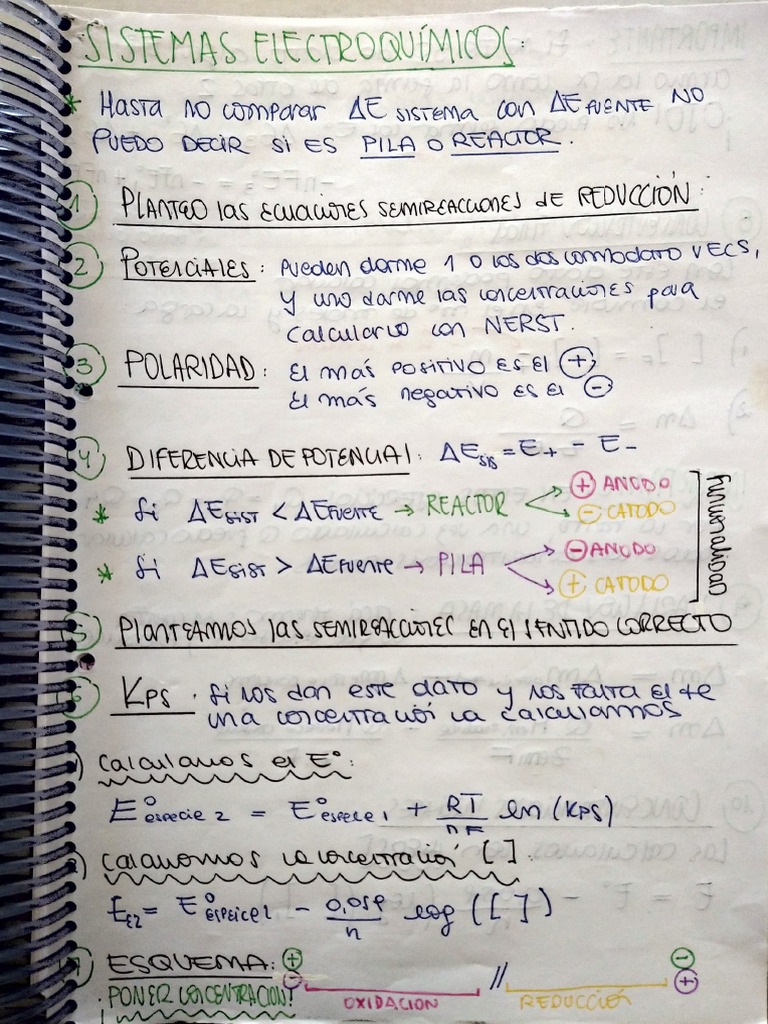 SISTEMAS ELECTROQUÍMICOS:
* HASTA NO COMPARAR ΔE SISTEMA CON ΔE FUENTE NO
PUEDO DECIR SI ES PILA O REACTOR.
1 PLANTEO LAS ECUACIONES SEMIREACCIONES DE REDUCCIÓN:
2 POTENCIALES: PUEDEN DARME 1 O LOS DOS COMO DATO VECS,
Y UNO DARME LAS CONCENTRACIONES PARA
CALCULARLO CON NERST.
3 POLARIDAD: El MÁS POSITIVO ES El +
El MÁS NEGATIVO ES El -
4 DIFERENCIA DE POTENCIAL: ΔE SIS = E+ - E-
* Si ΔE SIST < ΔE FUENTE → REACTOR + ANODO - CATODO
* Si ΔE SIST > ΔE FUENTE → PILA - ANODO + CATODO
Funcionalidad
5 PLANTEAMOS LAS SEMIREACCIONES EN El SENTIDO CORRECTO
6 Kps. Si NOS DAN ESTE DATO Y NOS FALTA El de
UNA CONCENTRACIÓN LA CALCULAMOS
) CALCULAMOS El E°:
E° especie 2 = E° especie 1 + RT/nF ln (KPS)
) CALCULAMOS LA CONCENTRACIÓN [ ].
E E2 = E° especie 2 - 0,059/n log ([ ])
7 ESQUEMA: + - // - +
PONER CONCENTRACION! OXIDACION REDUCCIÓN